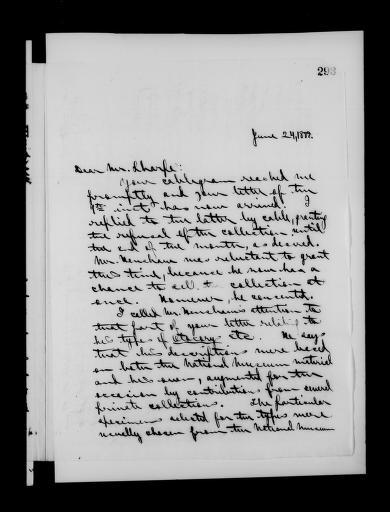 293
June 24, 188
Dear Mr. Sharpe:
Your cablegram reached me
promptly and your letter of the
9th inst. has now arrived. I
replied to the letter by cable, granting
the refusal of the collection until
the end of the month, as desired.
Mr. Henshaw was reluctant to grant
this time, because he now has a
chance to sell the collection at
once. However he consents.
I called Mr. Henshaw's attention to
that part of your letter relating to
his types of etc. He says
that his descriptions were based
on both the National Museum material
and his own, augmented for the
occasion by contributions from several
private collections. The particular
specimens selected for the types were
usually chosen from the National Museum